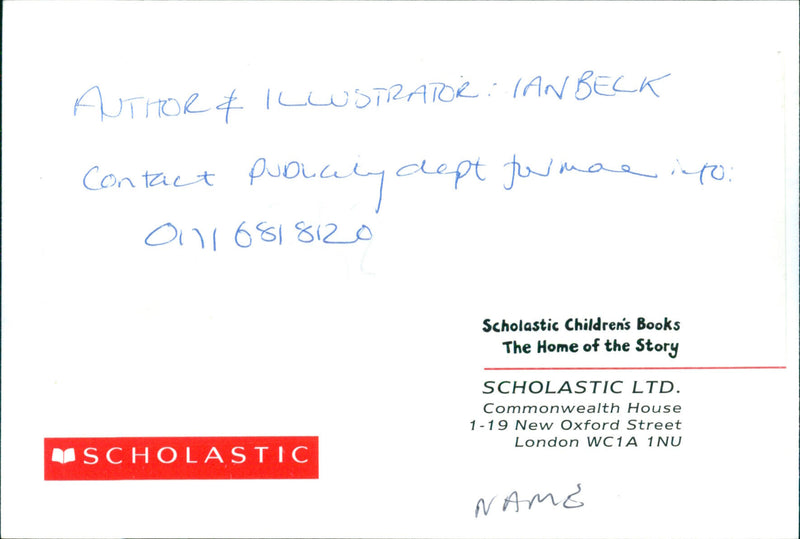 AUTHOR & ILLUSTRATOR: IAN BECK
Contact Publicity dept for more info:
0171 681 8120
Scholastic Children's Books
The Home of the Story
SCHOLASTIC LTD.
Commonwealth House
1-19 New Oxford Street
London WC1A 1NU
SCHOLASTIC
NAME